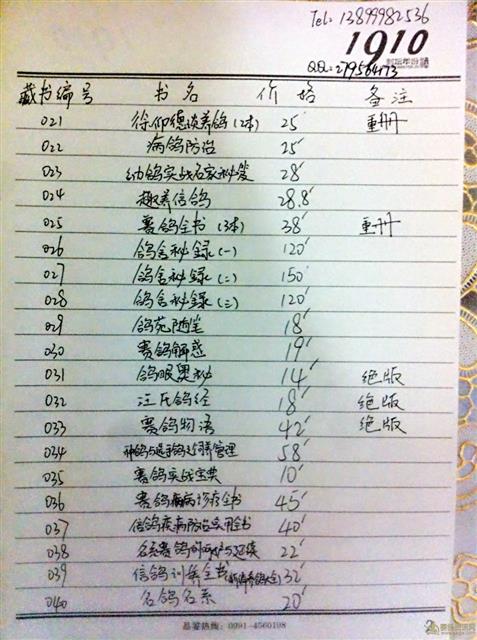 Tel: 13899982536
1910
封坛年份酒
QQ: 279564173
藏书编号 书名 价格 备注
021 徐仰德谈养鸽(2本) 25 重册
022 病鸽防治 25
023 幼鸽实战名家秘笈 28
024 趣养信鸽 28.8
025 赛鸽全书 (3本) 38 重册
026 鸽舍秘录(一) 120
027 鸽舍秘录(二) 150
028 鸽舍秘録(三) 120
029 鸽苑随笔 18
030 赛鸽解惑 19
031 鸽眼奥秘 14 绝版
032 汪氏鸽经 18 绝版
033 赛鸽物语 42 绝版
034 种鸽与选手鸽 管理 58
035 赛鸽实战宝典 10
036 赛鸽疾病诊疗全书 45
037 信鸽疾病防治实用全书 40
038 名家赛鸽 22
039 信鸽训养全书 32
040 名鸽名系 20
品鉴热线：0991-4560198
2